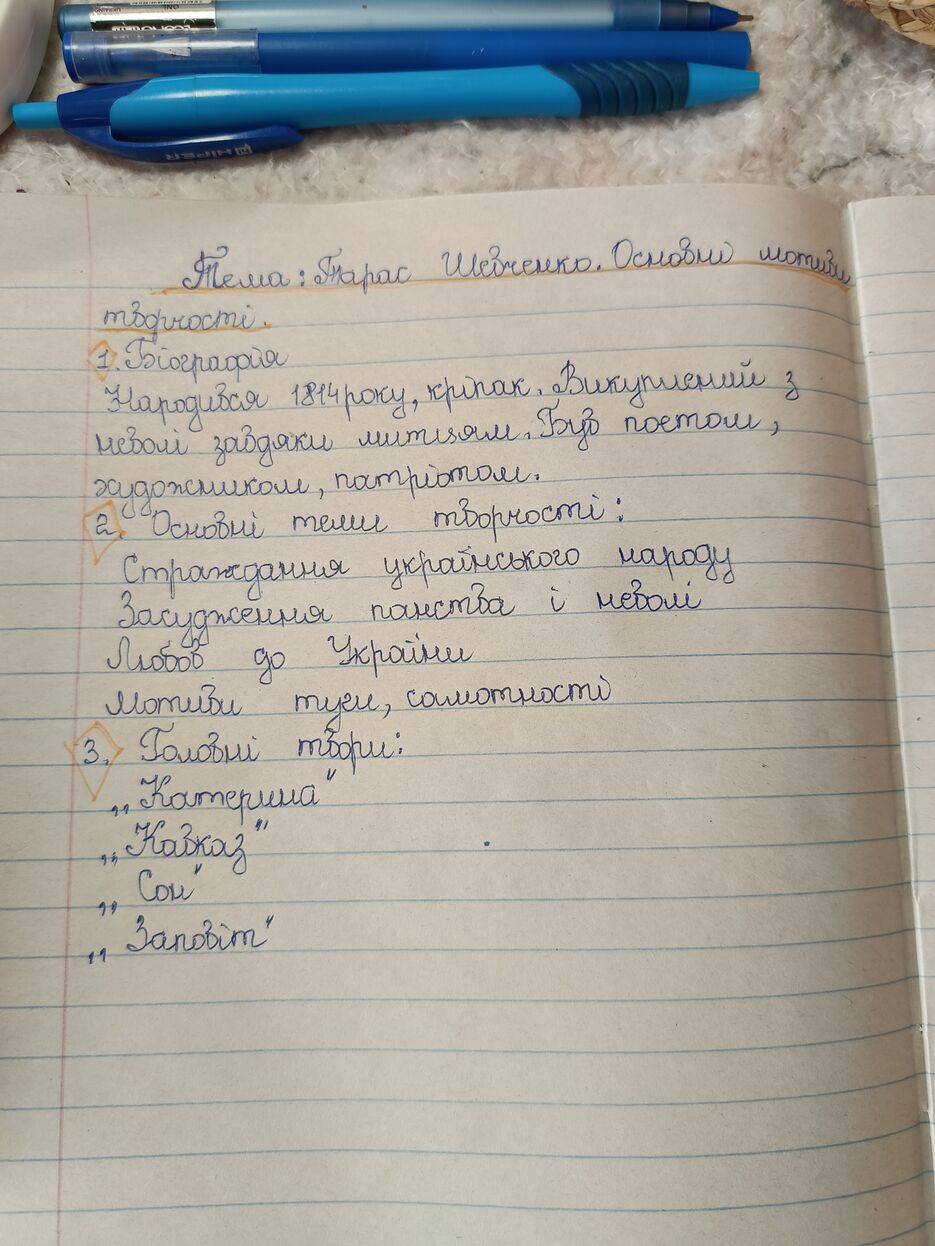 UKRAINE
ECONOMIX
HIPER
Тема: Тарас Шевченко. Основні мотиви
творчості.
1. Біографія
Народився 1814 року, кріпак. Викуплений з
неволі завдяки митцям. Був поетом,
художником, патріотом.
2. Основні теми творчості:
Страждання українського народу
Засудження панства і неволі
Любов до України
Мотиви туги, самотності
3. Головні твори:
„Катерина"
„Кавказ"
„Сон"
„Заповіт"